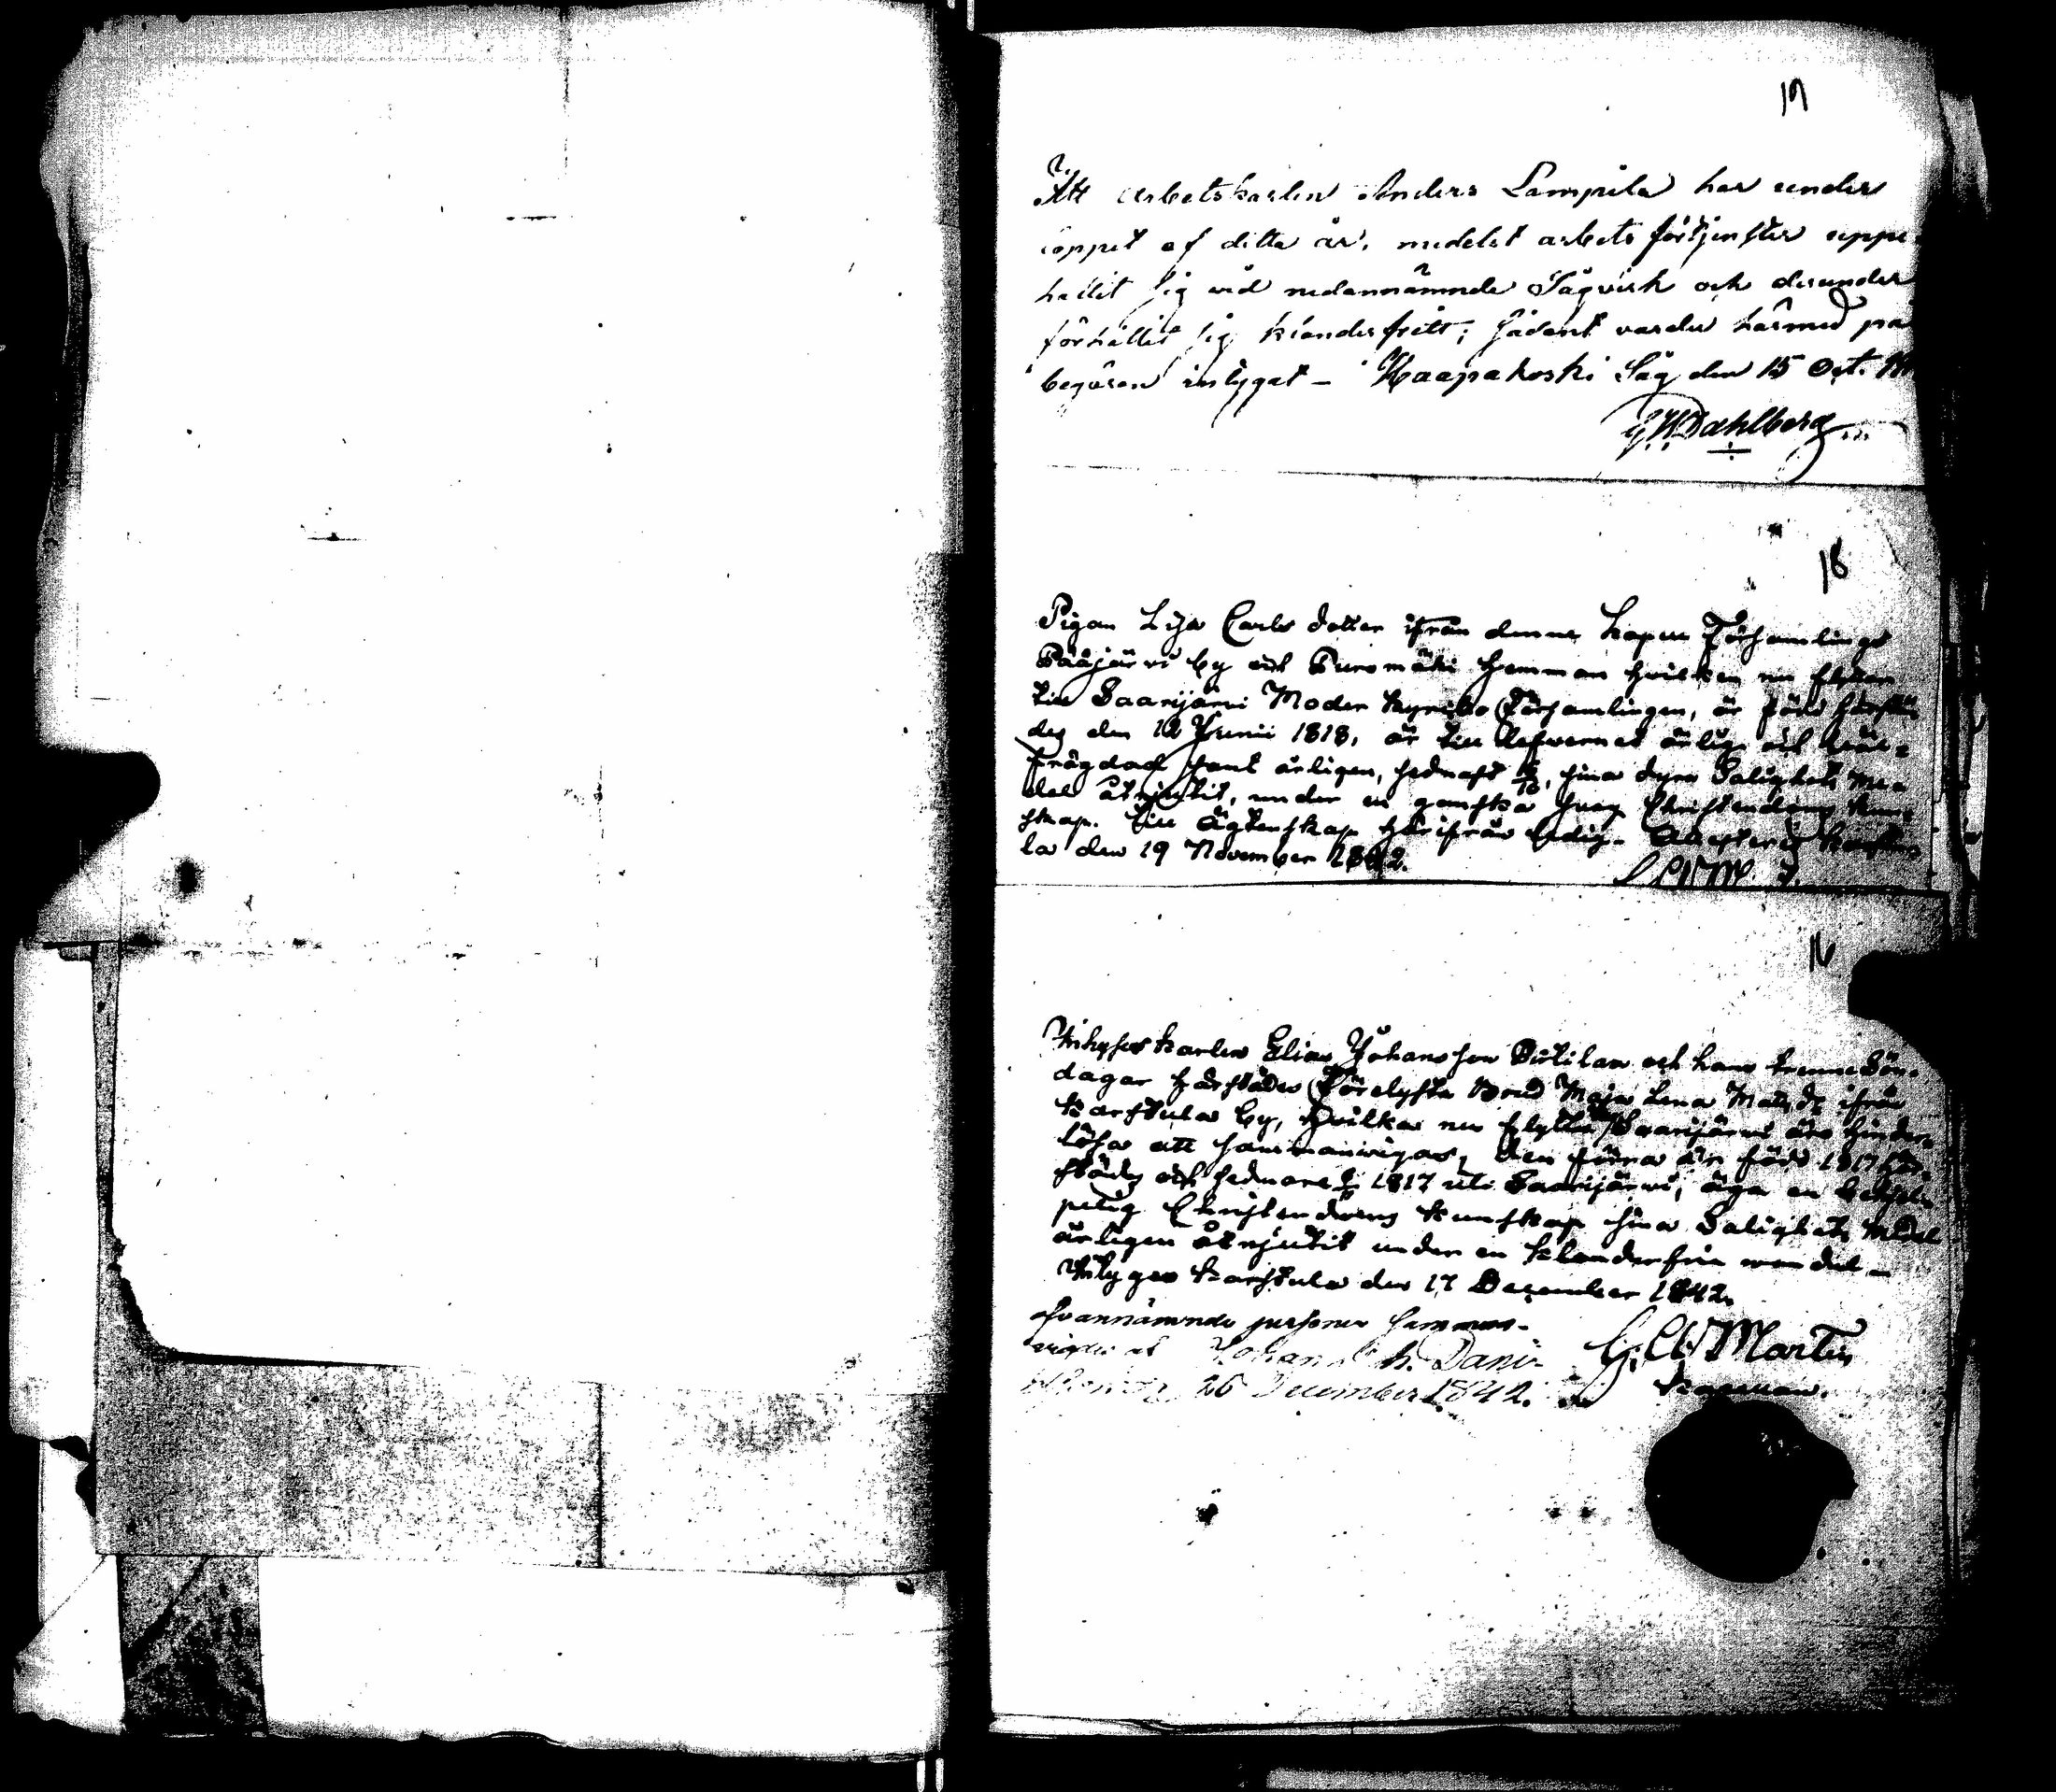 17
Att Arbetskarlen Anders Lampila har under
loppet af detta år, medelst arbets förtjenster uppe
hållit sig vid nedannämnde Sågverk och derunder
förhållit sig klanderfritt; sådant varder härmed på
begäran intygat - Haapakoski Såg den 15 Oct.
G. W. Dahlberg
18
Pigan Lisa Carls dotter ifrån denne Kapell Församlings
Pääjärvi by och Puromäki Hemman hvilken nu flyttar
till Saarijärvi Moder Kyrko Församlingen, är född härstä
des den 12 Junii 1818, är till lefvernet ärlig och
frägdad samt årligen, sednast, sina dyra Salighets Me-
del åtnjutit, under en ganska svag Christendoms kun-
skap. Till Ägtenskap härifrån ledig. Attesterar Karstu-
la den 19 November 1842.
16
Inhyses karlen Elias Johansson och hans trenne Sön-
dagar härstädes Förelysta Brud Maja Lena Mats dr ifrån
Karstula by, hvilka nu flytta Saarijärvi äro hinder-
lösa att sammanvigas, den förra är född 1817 här-
städes och sednare 1817 uti Saarijärvi, äga en behjel-
pelig Christendoms kunskap sina Salighets Medel
årligen åtnjutit under en klanderfri vandel -
Intygas Karstula den 17 December 1842.
Ofvannämnde personer samman-
vigde af Johan
26 December 1842.
G. W. Martin
Kapellan.